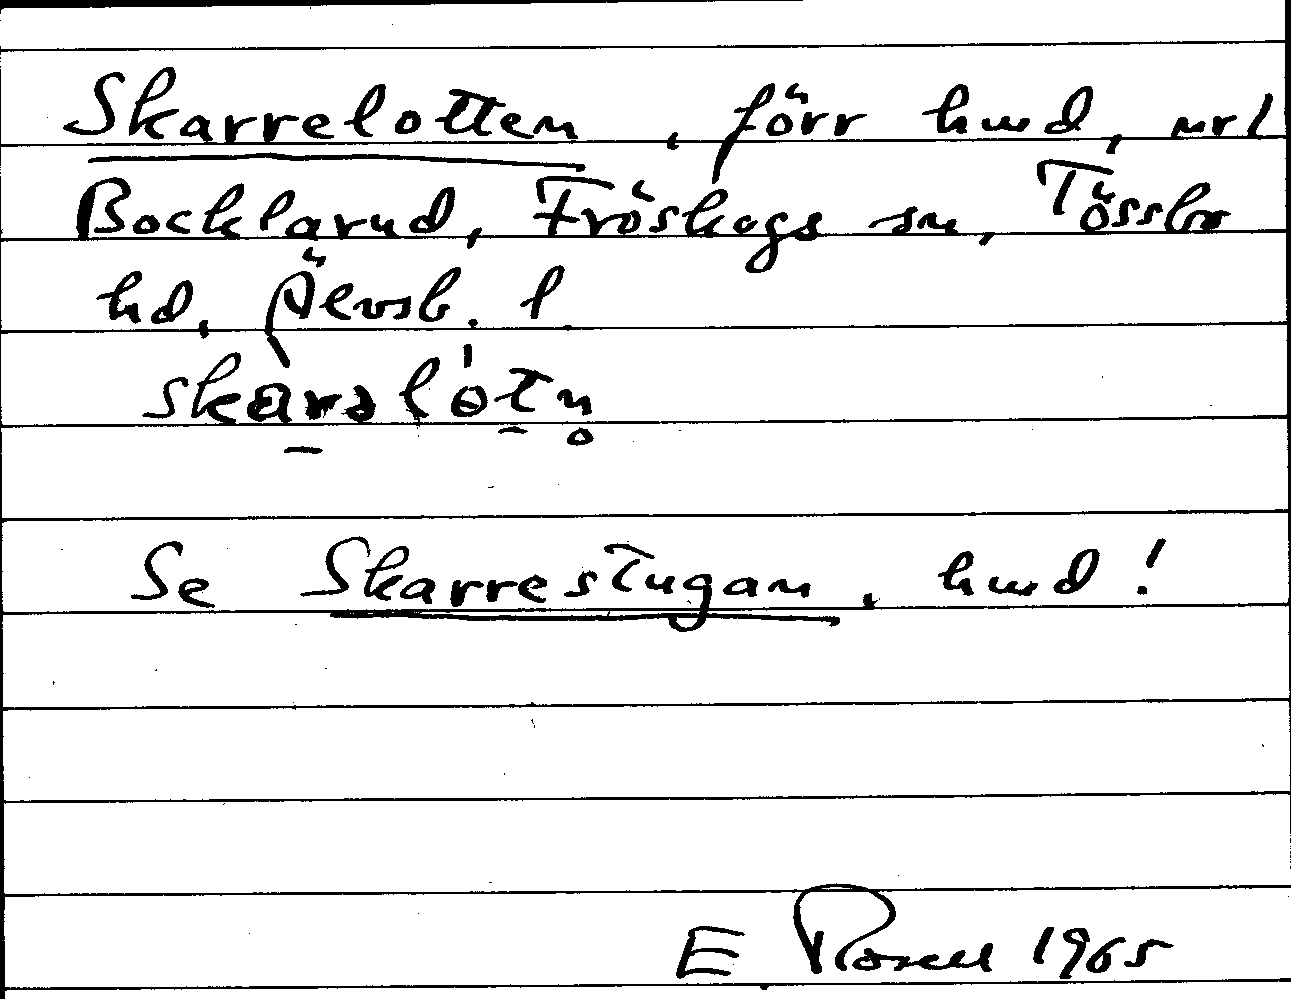 Skarrelotten, förr hmd, nr 1
Bocklarud, Fröskogs sn, Tössbo
hd, Älvsb. l
skàrəlótn̥
Se Skarrestugan, hmd!
E Rosell 1965